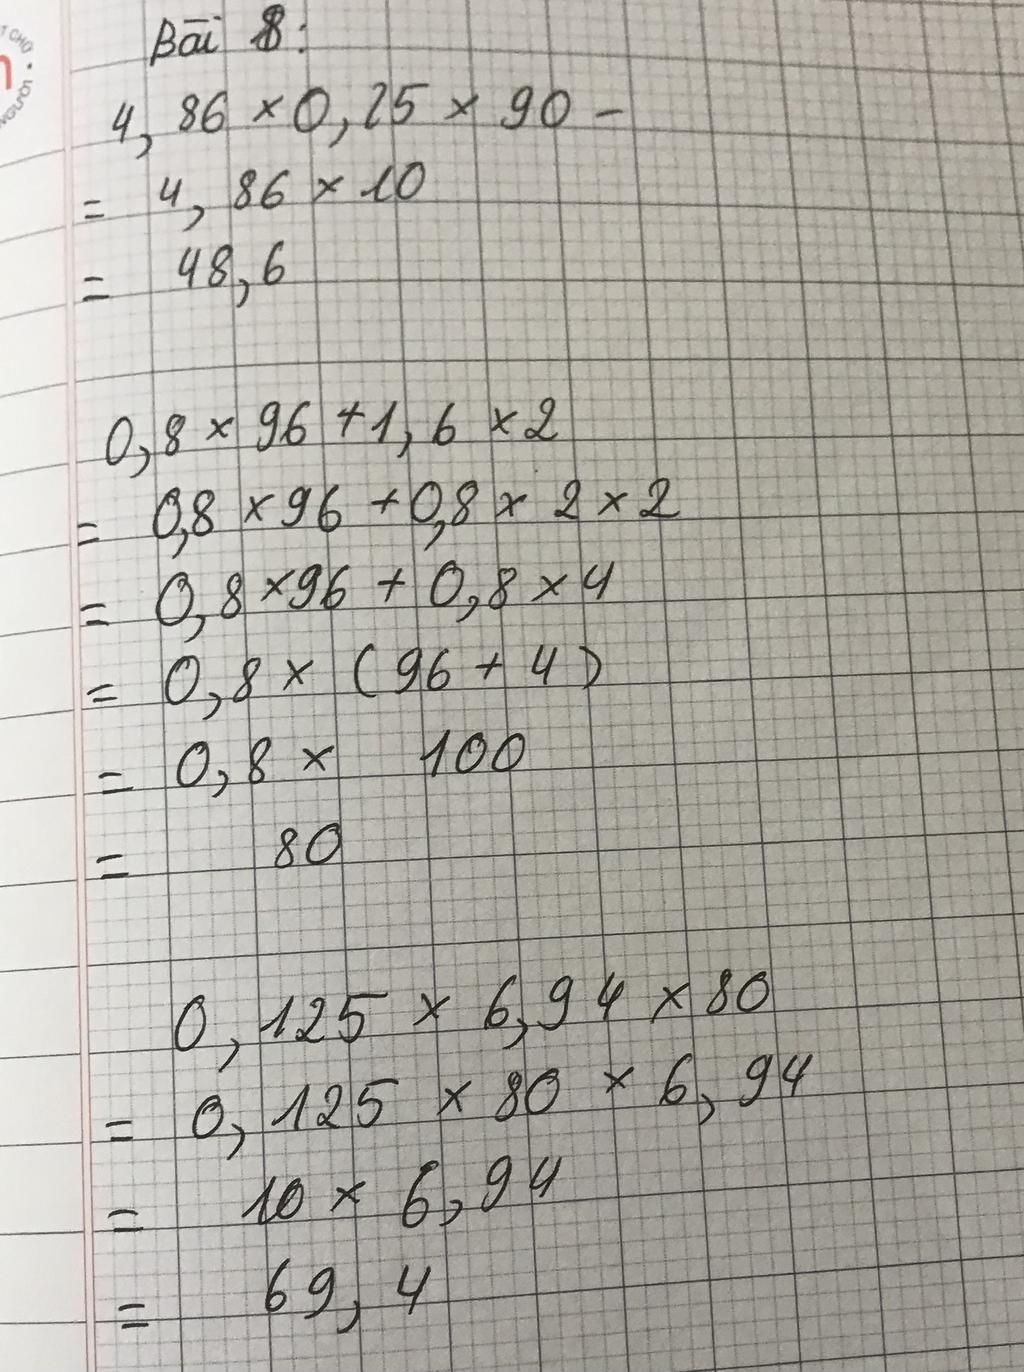 Bài 8:
4,86 × 0,25 × 90 -
= 4,86 × 10
= 48,6
0,8 × 96 + 1,6 × 2
= 0,8 × 96 + 0,8 × 2 × 2
= 0,8 × 96 + 0,8 × 4
= 0,8 × (96 + 4)
= 0,8 × 100
= 80
0,125 × 6,94 × 80
= 0,125 × 80 × 6,94
= 10 × 6,94
= 69,4